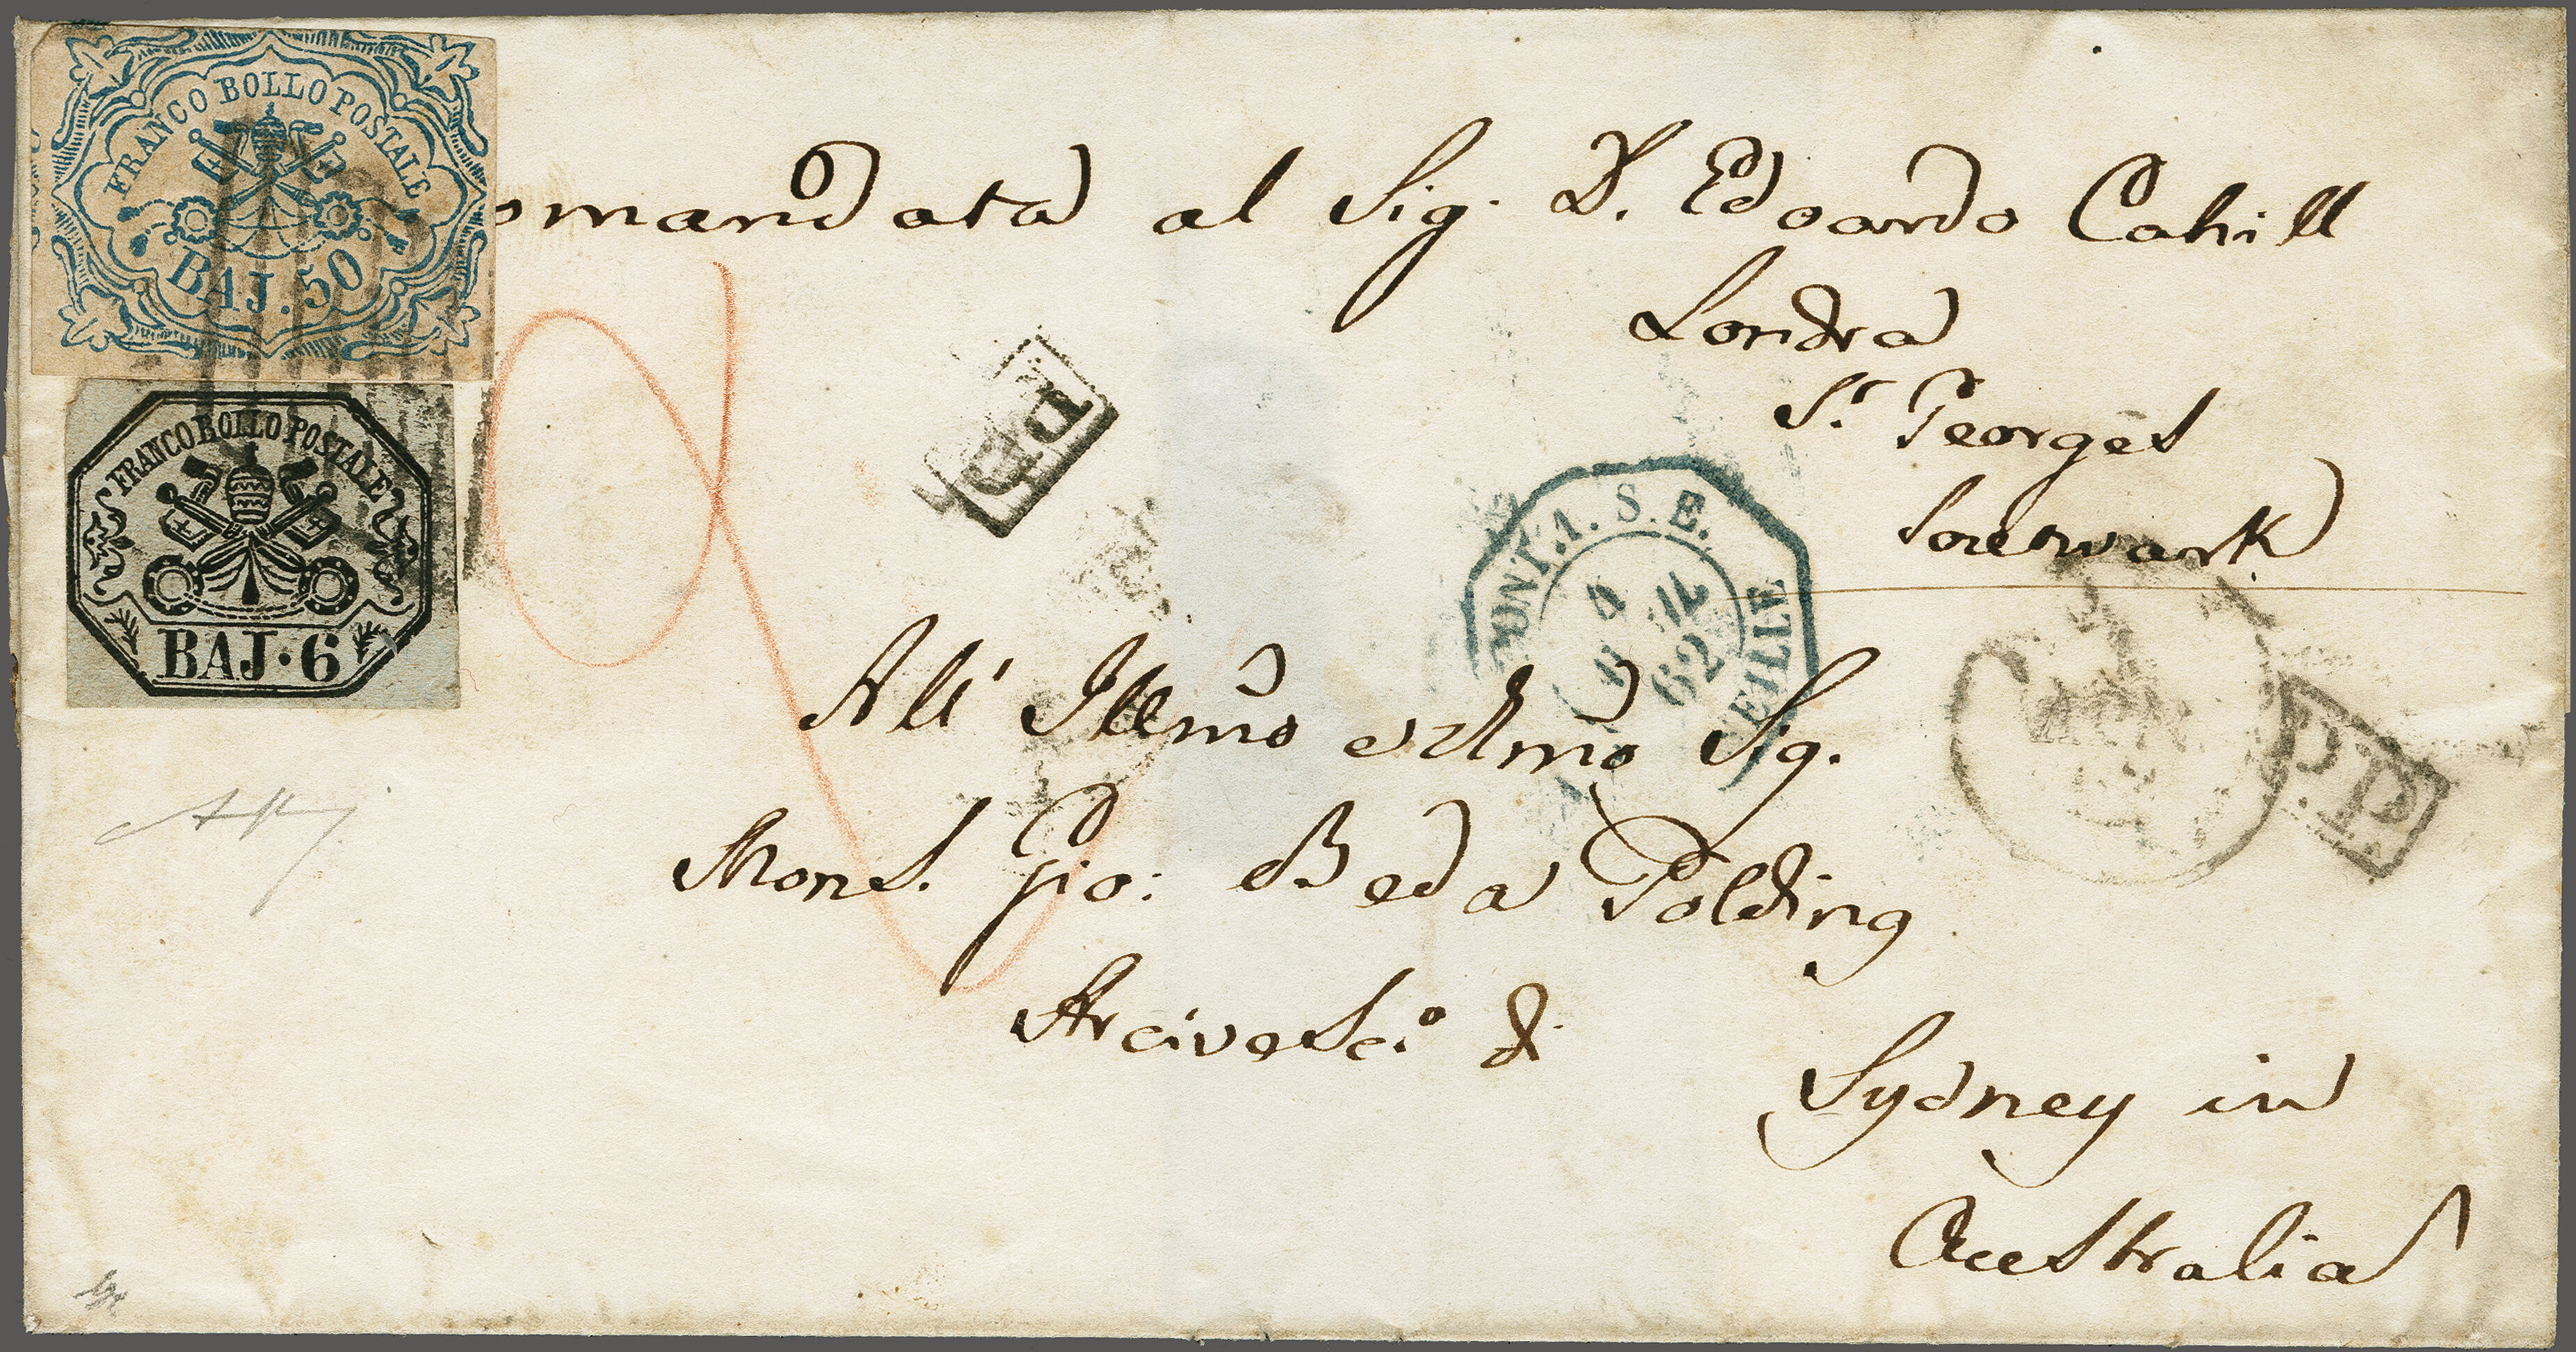 FRANCO BOLLO POSTALE
BAJ. 50
FRANCO BOLLO POSTALE
BAJ·6
omandata al Sig. D. Edoardo Cahill
Londra
St Georges
Soutwark
PD
PONT. 1. S. E.
62
EILLE
P.P.
All' Illmo e Rmo Sig.
Mons. Gio: Beda Polding
Arcivesc.o di
Sydney in
Australia